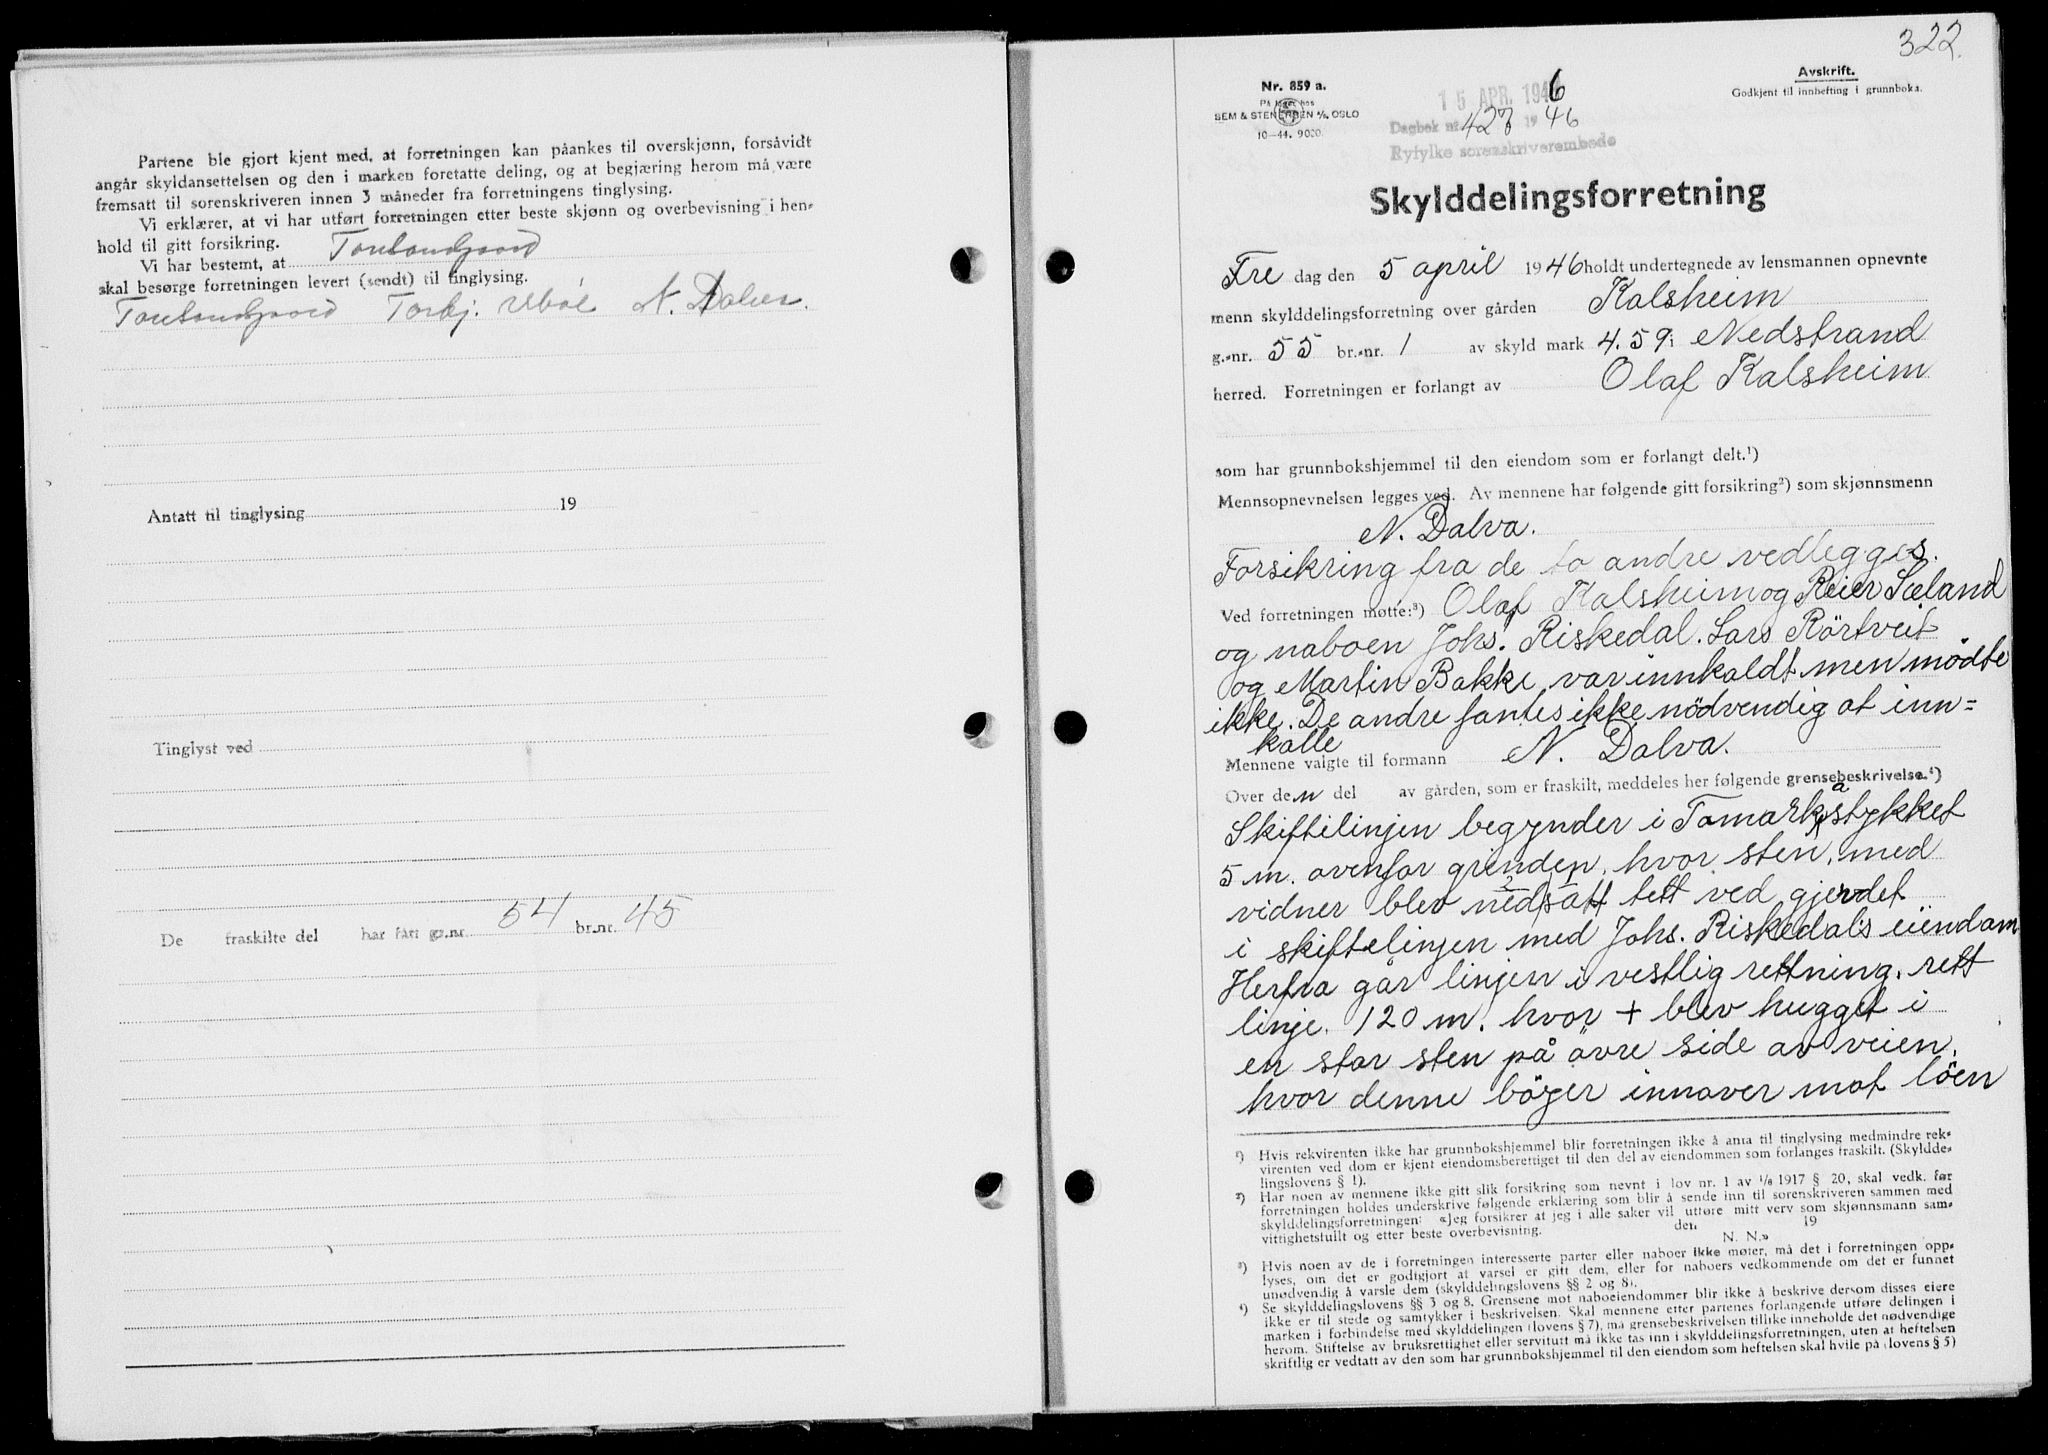 Partene ble gjort kjent med, at forretningen kan påankes til overskjønn, forsåvidt
angår skyldansettelsen og den i marken foretatte deling, og at begjæring herom må være
fremsatt til sorenskriveren innen 3 måneder fra forretningens tinglysing.
Vi erklærer, at vi har utført forretningen etter beste skjønn og overbevisning i hen-
hold til gitt forsikring.
Vi har bestemt, at
skal besørge forretningen levert (sendt) til tinglysing.
Torbj. N.
Antatt til tinglysing 19
Tinglyst ved
De fraskilte del har fått gr.nr. 54 br.nr. 45
322.
Nr. 859 a.
På lager hos
SEM & STENERSEN A/S, OSLO
10-44. 9000.
15 APR. 1946
Dagbok nr. 427 1946
Ryfylke sorenskriverembede
Avskrift.
Godkjent til innhefting i grunnboka.
Skylddelingsforretning
Fre dag den 5 april 1946 holdt undertegnede av lensmannen opnevnte
menn skylddelingsforretning over gården Kalsheim
g.-nr. 55 br.-nr. 1 av skyld mark 4.59 i Nedstrand
herred. Forretningen er forlangt av Olaf Kalsheim
som har grunnbokshjemmel til den eiendom som er forlangt delt.¹)
Mennsopnevnelsen legges ved. Av mennene har følgende gitt forsikring²) som skjønnsmenn
N. Dalva.
Forsikring fra de to andre vedlegges.
Ved forretningen møtte:³) Olaf Kalsheim og Reier Sæland
og naboen Johs. Riskedal. Lars Rörtveit
og Martin Bakke var innkaldt men mödte
ikke. De andre fantes ikke nödvendig at inn=
kalle
Mennene valgte til formann N. Dalva.
Over den del av gården, som er fraskilt, meddeles her følgende grensebeskrivelse.⁴)
Skiftelinjen begynder i Tomarkastykket
5 m. ovenfor grinden, hvor sten, med
2
vidner blev nedsatt tett ved gjerdet
i skiftelinjen med Johs. Riskedals eiendom
Herfra går linjen i vestlig rettning, rett
linje. 120 m. hvor + blev hugget i
en stor sten på övre side av veien,
hvor denne böyer innover mot löen
¹) Hvis rekvirenten ikke har grunnbokshjemmel blir forretningen ikke å anta til tinglysing medmindre rek-
virenten ved dom er kjent eiendomsberettiget til den del av eiendommen som forlanges fraskilt. (Skyldde-
lingslovens § 1).
²) Har noen av mennene ikke gitt slik forsikring som nevnt i lov nr. 1 av 1/6 1917 § 20, skal vedk. før
forretningen holdes underskrive følgende erklæring som blir å sende inn til sorenskriveren sammen med
skylddelingsforretningen: «Jeg forsikrer at jeg i alle saker vil utføre mitt verv som skjønnsmann sam-
vittighetsfullt og etter beste overbevisning. den 19
N. N.»
³) Hvis noen av de i forretningen interesserte parter eller naboer ikke møter, må det i forretningen opp-
lyses, om det er godtgjort at varsel er gitt dem, eller for naboers vedkommende om det er funnet
unødvendig å varsle dem (skylddelingslovens §§ 2 og 8).
⁴) Se skylddelingslovens §§ 3 og 8. Grensene mot naboeiendommer blir ikke å beskrive dersom disses eiere
ikke er til stede og samtykker i beskrivelsen. Skal mennene etter partenes forlangende utføre delingen i
marken i forbindelse med skylddelingen (lovens § 7), må grensebeskrivelsen tillike inneholde det nødvendige
herom. Stiftelse av bruksrettighet eller servitutt må ikke tas inn i skylddelingsforretningen, uten at heftelsen
skriftlig er vedtatt av den som har grunnbokshjemmel til den eiendom som heftelsen skal hvile på (lovens § 5)